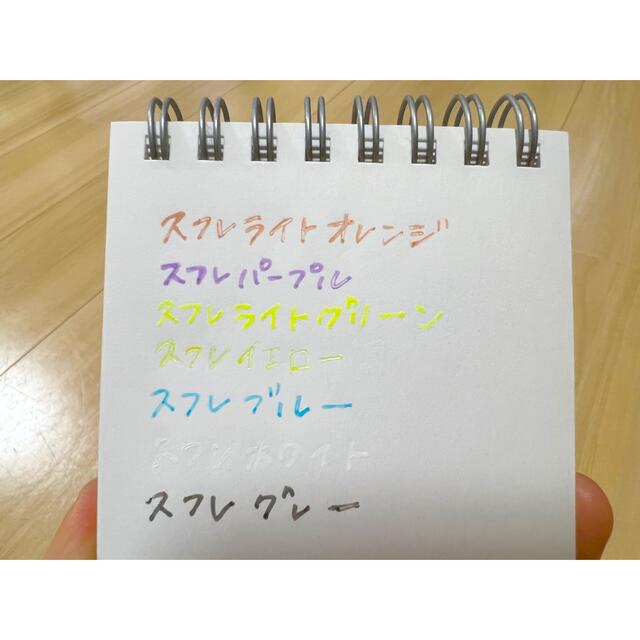 スフレライトオレンジ
スフレパープル
スフレライトグリーン
スフレイエロー
スフレブルー
スフレホワイト
スフレグレー